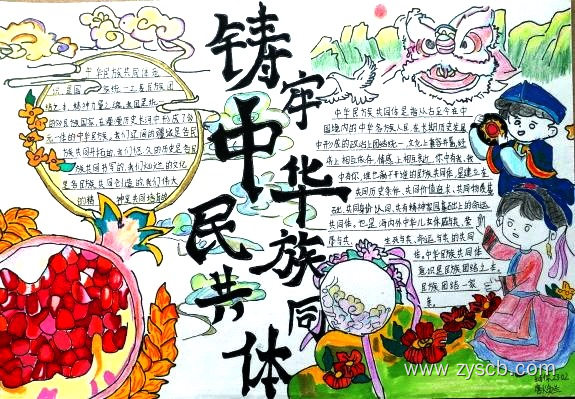 铸牢中华民族共同体
中华民族共同体意
识,是国
的56民族国家,在漫漫历史长河中形成了多
元一体的中华民族,我们辽阔的疆域是各民
族共同开拓的,我们悠久的历史是各民
族共同书写的,我们灿烂的文化
是各民族共同创造的,我们伟大
的精神是共同培育的
中华民族共同体是指从古至今在中
国境内的中华各族人民,在长期历史发展
中形成的政治上团结统一,文化上兼容并蓄,经
济上相互依存,情感上相互亲近,你中有我,我
中有你,谁也离不开谁的民族共同体,是建立在
共同历史条件、共同价值追求、共同物质基
础、共同身份认同、共有精神家园基础上的命运
共同体,也是海内外中华儿女休戚与共、荣
辱与共、生死与共、命运与共的共同
体。中华民族共同体
意识是民族团结之本,
民族团结一家
亲。
www.zyscb.com